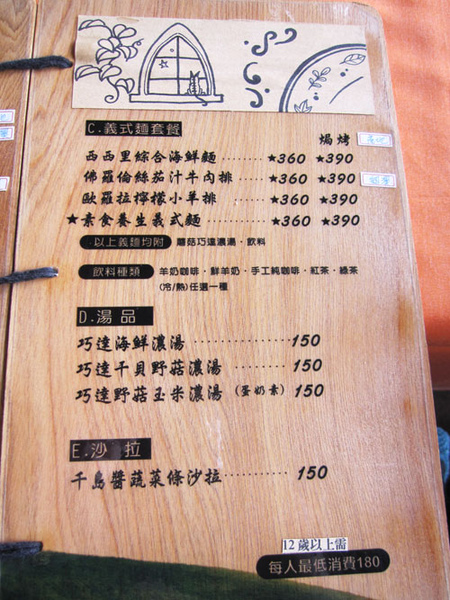 C.義式麵套餐
焗烤
西西里綜合海鮮麵 ········ ★360 ★390
佛羅倫絲茄汁牛肉排 ······ ★360 ★390
歐羅拉檸檬小羊排 ······· ★360 ★390
★素食養生義式麵 ········ ★360 ★390
以上義麵均附 蘑菇巧達濃湯·飲料
飲料種類 羊奶咖啡·鮮羊奶·手工純咖啡·紅茶·綠茶
(冷/熱)任選一種
D.湯品
巧達海鮮濃湯 ················ 150
巧達干貝野菇濃湯 ········ 150
巧達野菇玉米濃湯 (蛋奶素) 150
E.沙 拉
千島醬蔬菜條沙拉 ········· 150
12歲以上需
每人最低消費180